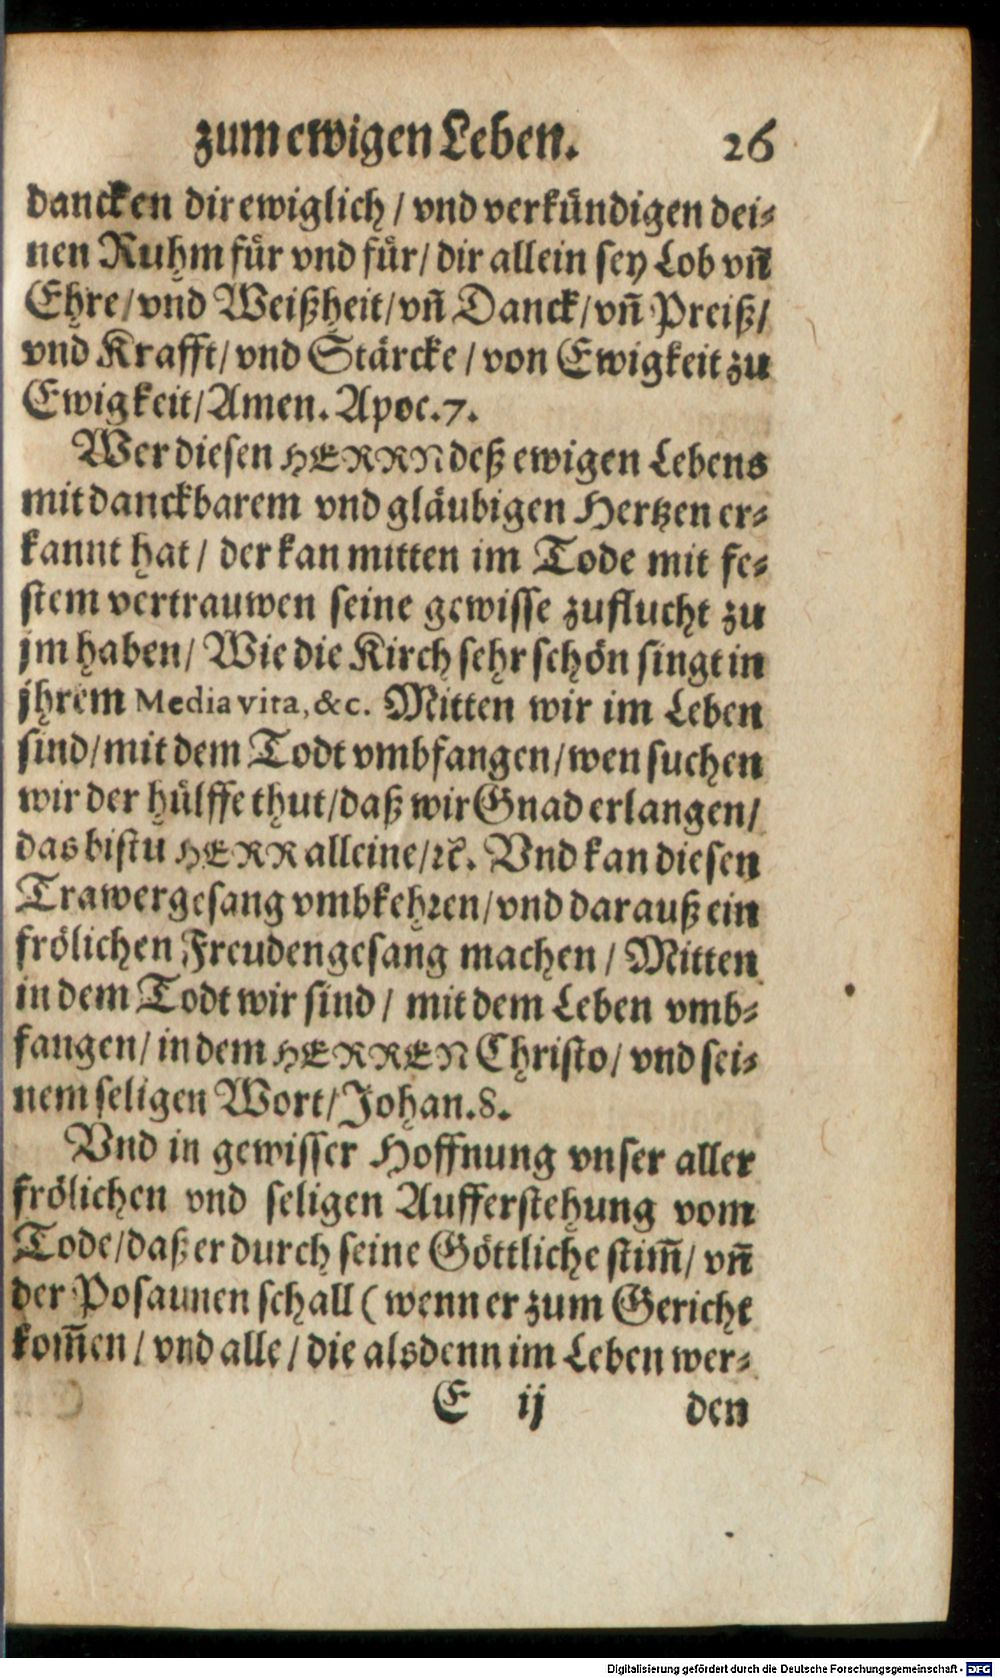 zum ewigen Leben. 26
dancken dir ewiglich / vnd verkündigen dei⸗
nen Ruhm für vnd für / dir allein sey Lob vñ
Ehre / vnd Weißheit / vñ Danck / vñ Preiß /
vnd Krafft / vnd Stärcke / von Ewigkeit zu
Ewigkeit / Amen. Apoc. 7.
Wer diesen HERRN deß ewigen Lebens
mit danckbarem vnd gläubigen Hertzen er⸗
kannt hat / der kan mitten im Tode mit fe⸗
stem vertrauwen seine gewisse zuflucht zu
jm haben / Wie die Kirch sehr schön singt in
jhrem Media vita, &c. Mitten wir im Leben
sind / mit dem Todt vmbfangen / wen suchen
wir der hülffe thut / daß wir Gnad erlangen /
das bistu HERR alleine / ꝛc. Vnd kan diesen
Trawergesang vmbkehren / vnd darauß ein
frölichen Freudengesang machen / Mitten
in dem Todt wir sind / mit dem Leben vmb⸗
fangen / in dem HERREN Christo / vnd sei⸗
nem seligen Wort / Johan. 8.
Vnd in gewisser Hoffnung vnser aller
frölichen vnd seligen Aufferstehung vom
Tode / daß er durch seine Göttliche stim̃ / vñ
der Posaunen schall ( wenn er zum Gericht
kom̃en / vnd alle / die alsdenn im Leben wer⸗
E ij den
Digitalisierung gefördert durch die Deutsche Forschungsgemeinschaft - DFG